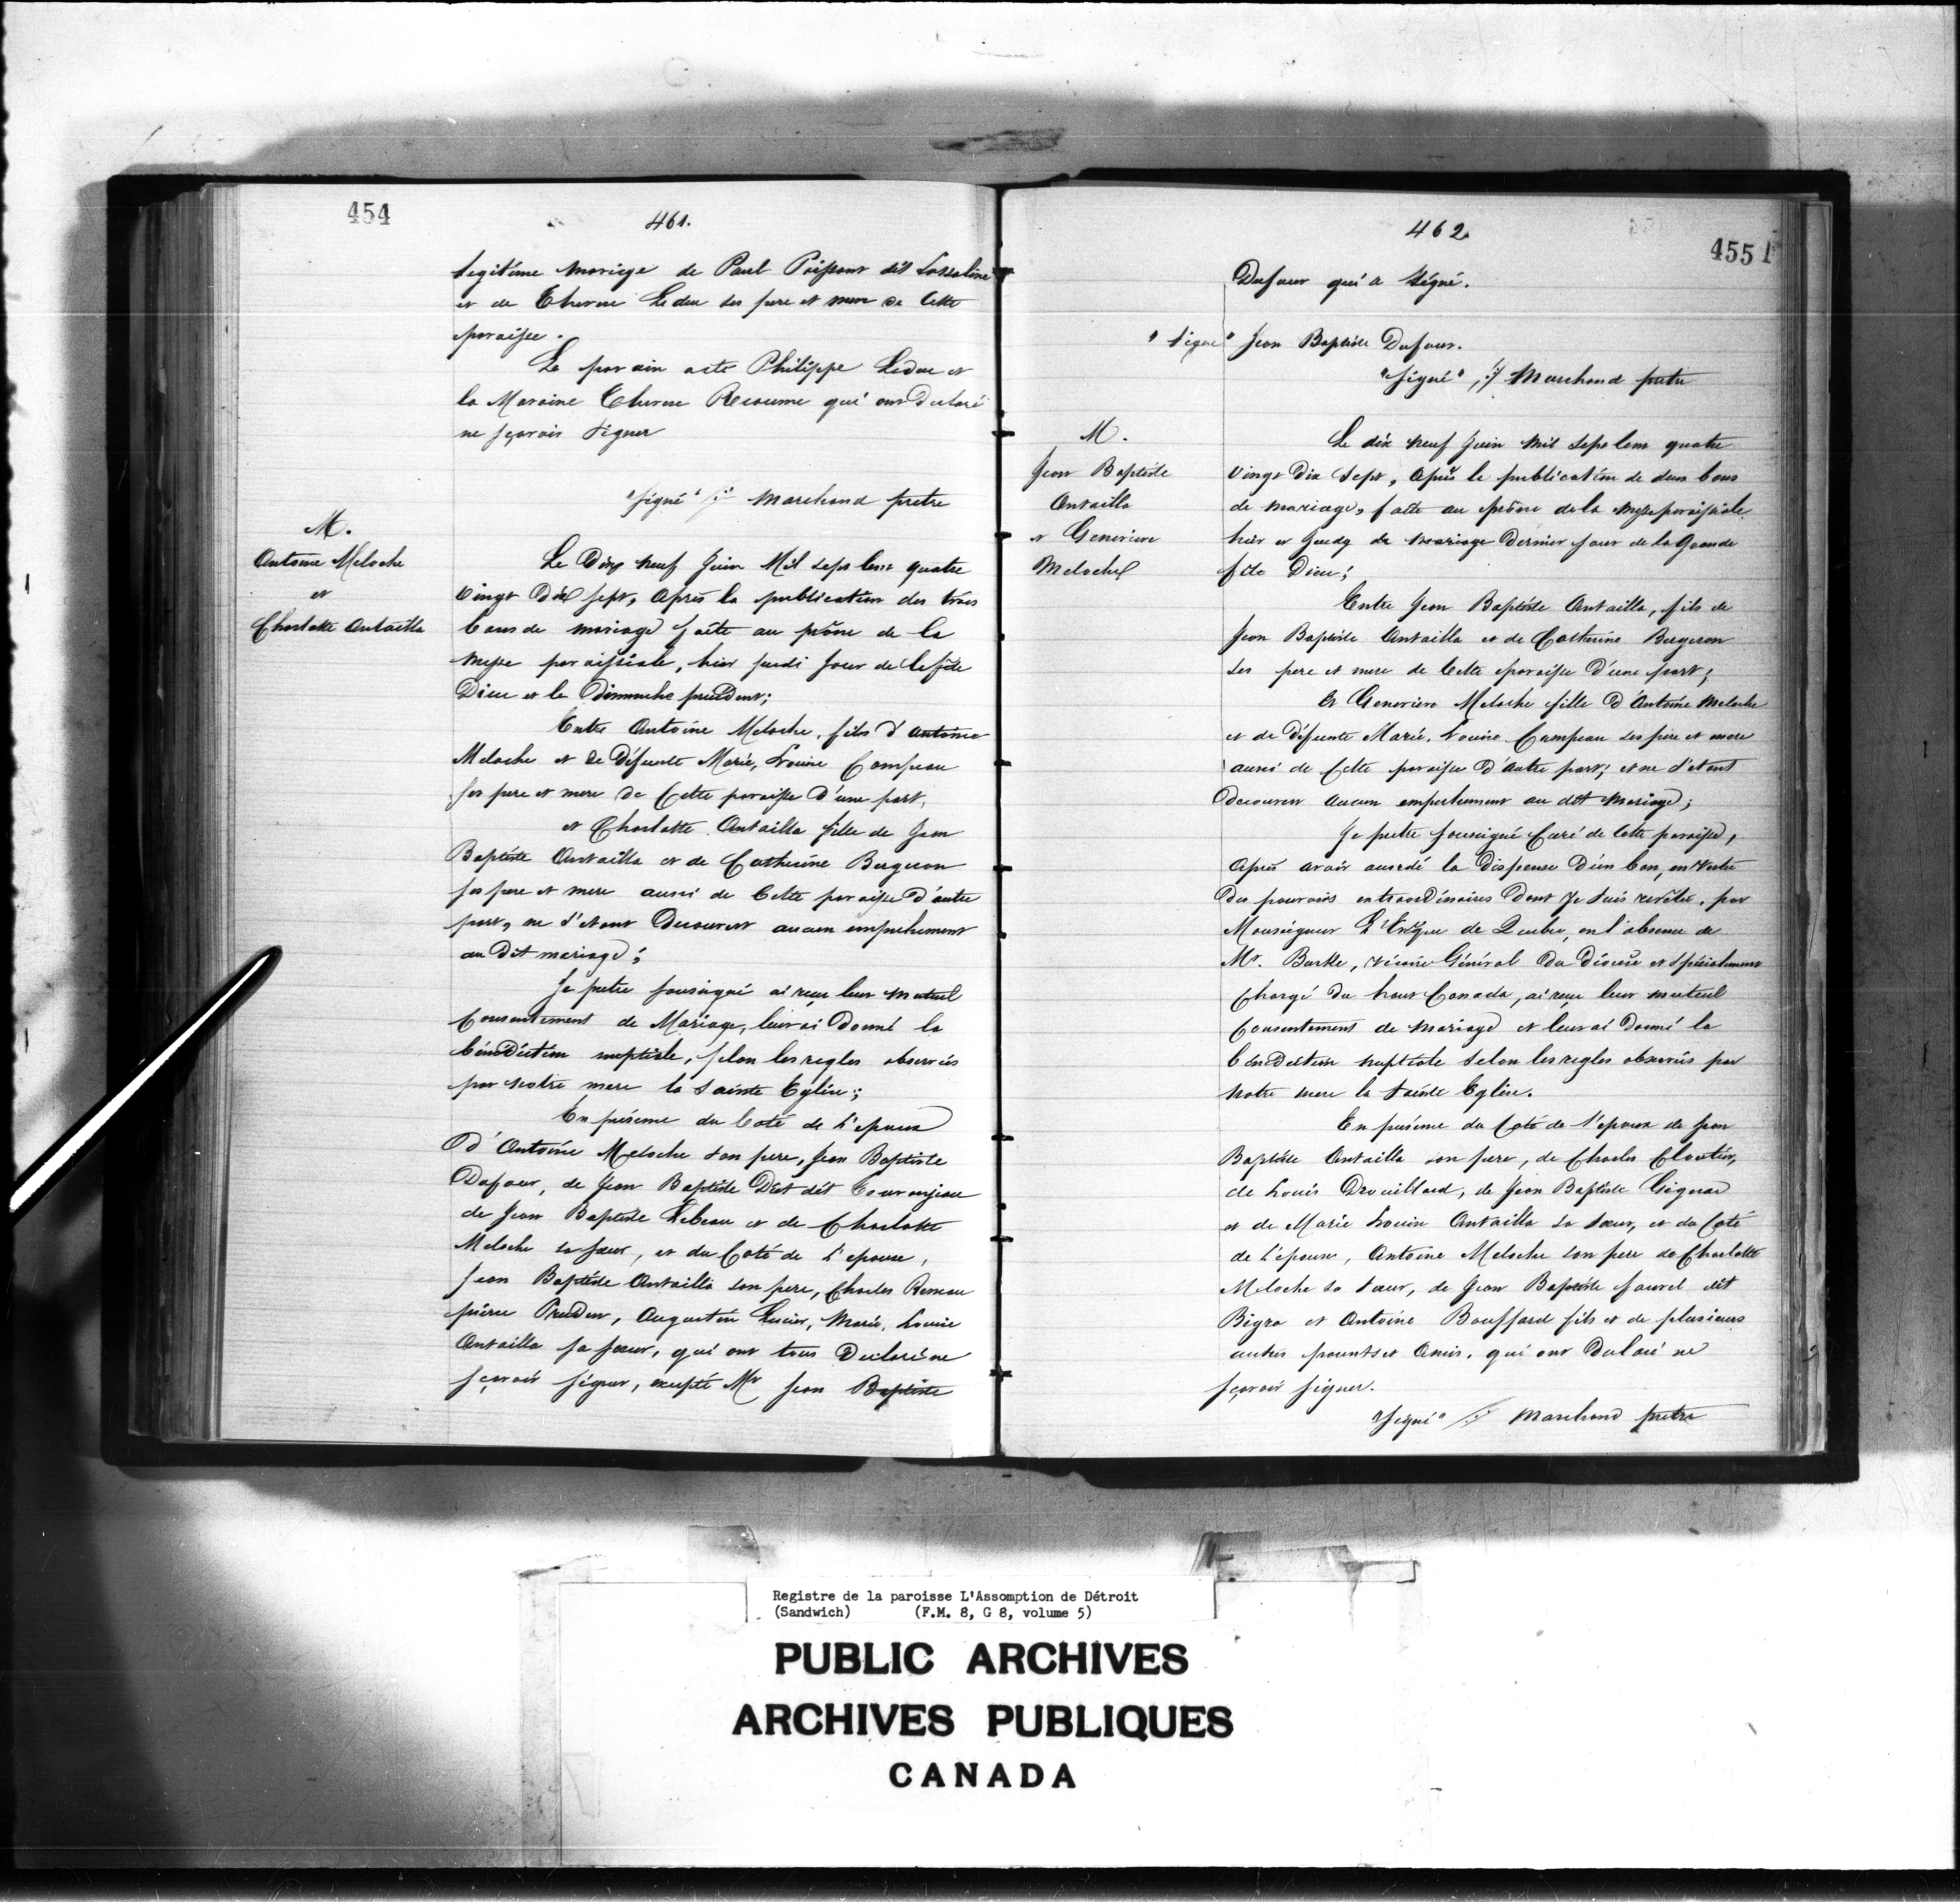 454
461.
legitime mariage de Paul Poissont dit Lassaline
et de Therese Leduc ses pere et mere de Cette
paroisse.
Le parain acte Philippe Leduc et
la Maraine Therese Reaume qui ont Declaré
ne sçavoir signer
"signé" Marchand pretre
M.
Antoine Meloche
et
Charlotte Antailla
Le Dix neuf Juin Mil sept cent quatre
Vingt Dix sept, après la publication des trois
bans de mariage faite au prône de la
Messe paroissiale, hier jeudi jour de la fête
Dieu et le Dimanche precedent;
Entre Antoine Meloche, fils d'antoine
Meloche et de Défunte Marie, Louise Campeau
ses pere et mere de Cette paroisse d'une part,
et Charlotte Antailla fille de Jean
Baptiste Antailla et de Catherine Bergeron
ses pere et mere aussi de Cette paroisse d'autre
part, ne s'etant Decouvert aucun empechement
au Dit mariage;
Je pretre soussigné ai reçu leur mutuel
Consentement de Mariage, leur ai Donné la
bénédiction nuptiale, selon les regles observées
par notre mere la Sainte Eglise;
En présence du Coté de L'epoux
D'Antoine Meloche son pere, Jean Baptiste
Dufour, de Jean Baptiste
de Jean Baptiste Lebeau et de Charlotte
Meloche sa sœur, et du Coté de L'epouse,
Jean Baptiste Antailla son pere, Charles Reneau
pierre Prudent, Augustin Lucier, Marie, Louise
Antailla sa sœur, qui ont tous Declaré ne
sçavoir signer, excepté Mr Jean Baptiste
462
455
Dufour qui a signé.
"signé" Jean Baptiste Dufour.
"signé", Marchand pretre
M.
Jean Baptiste
Antailla
et Genevieve
Meloche
Le dix neuf Juin mil sept cent quatre
Vingt Dix Sept, Après la publication de deux bans
de mariage, faite au prône de la messe paroissiale
hier et de mariage Dernier jour de la Grande
fête Dieu;
Entre Jean Baptiste Antailla, fils de
Jean Baptiste Antailla et de Catherine Bergeron
ses pere et mere de Cette paroisse d'une part;
Et Genevieve Meloche fille D'Antoine Meloche
et de Défunte Marie, Louise Campeau ses pere et mere
aussi de Cette paroisse D'autre part; et ne s'etant
decouvert aucun empechement au dit Mariage;
Je pretre soussigné Curé de Cette paroisse,
Après avoir accordé la Dispense D'un ban, en vertu
Des pouvoirs extraordinaires Dont je suis revêtu, par
Monseigneur L'Evêque de Quebec, en l'absence de
Mr. Burke, vicaire Général Du Diocèse et spécialement
Chargé Du haut Canada, ai reçu leur mutuel
Consentement de Mariage et leur ai Donné la
bénédiction nuptiale selon les regles observées par
notre mere la Sainte Eglise.
En présence du Coté de l'epoux de Jean
Baptiste Antailla son pere, de Charles Cloutier,
de Louis Drouillard, de Jean Baptiste Gignac
et de Marie Louise Antailla sa sœur, et du Coté
de L'épouse, Antoine Meloche son pere de Charlotte
Meloche sa sœur, de Jean Baptiste faurel dit
Bigra et Antoine Bouffard fils et de plusieurs
autres parents et Amis, qui ont Declaré ne
sçavoir signer.
"Signé" Marchand pretre
Registre de la paroisse L'Assomption de Détroit
(Sandwich) (F.M. 8, G 8, volume 5)
PUBLIC ARCHIVES
ARCHIVES PUBLIQUES
CANADA